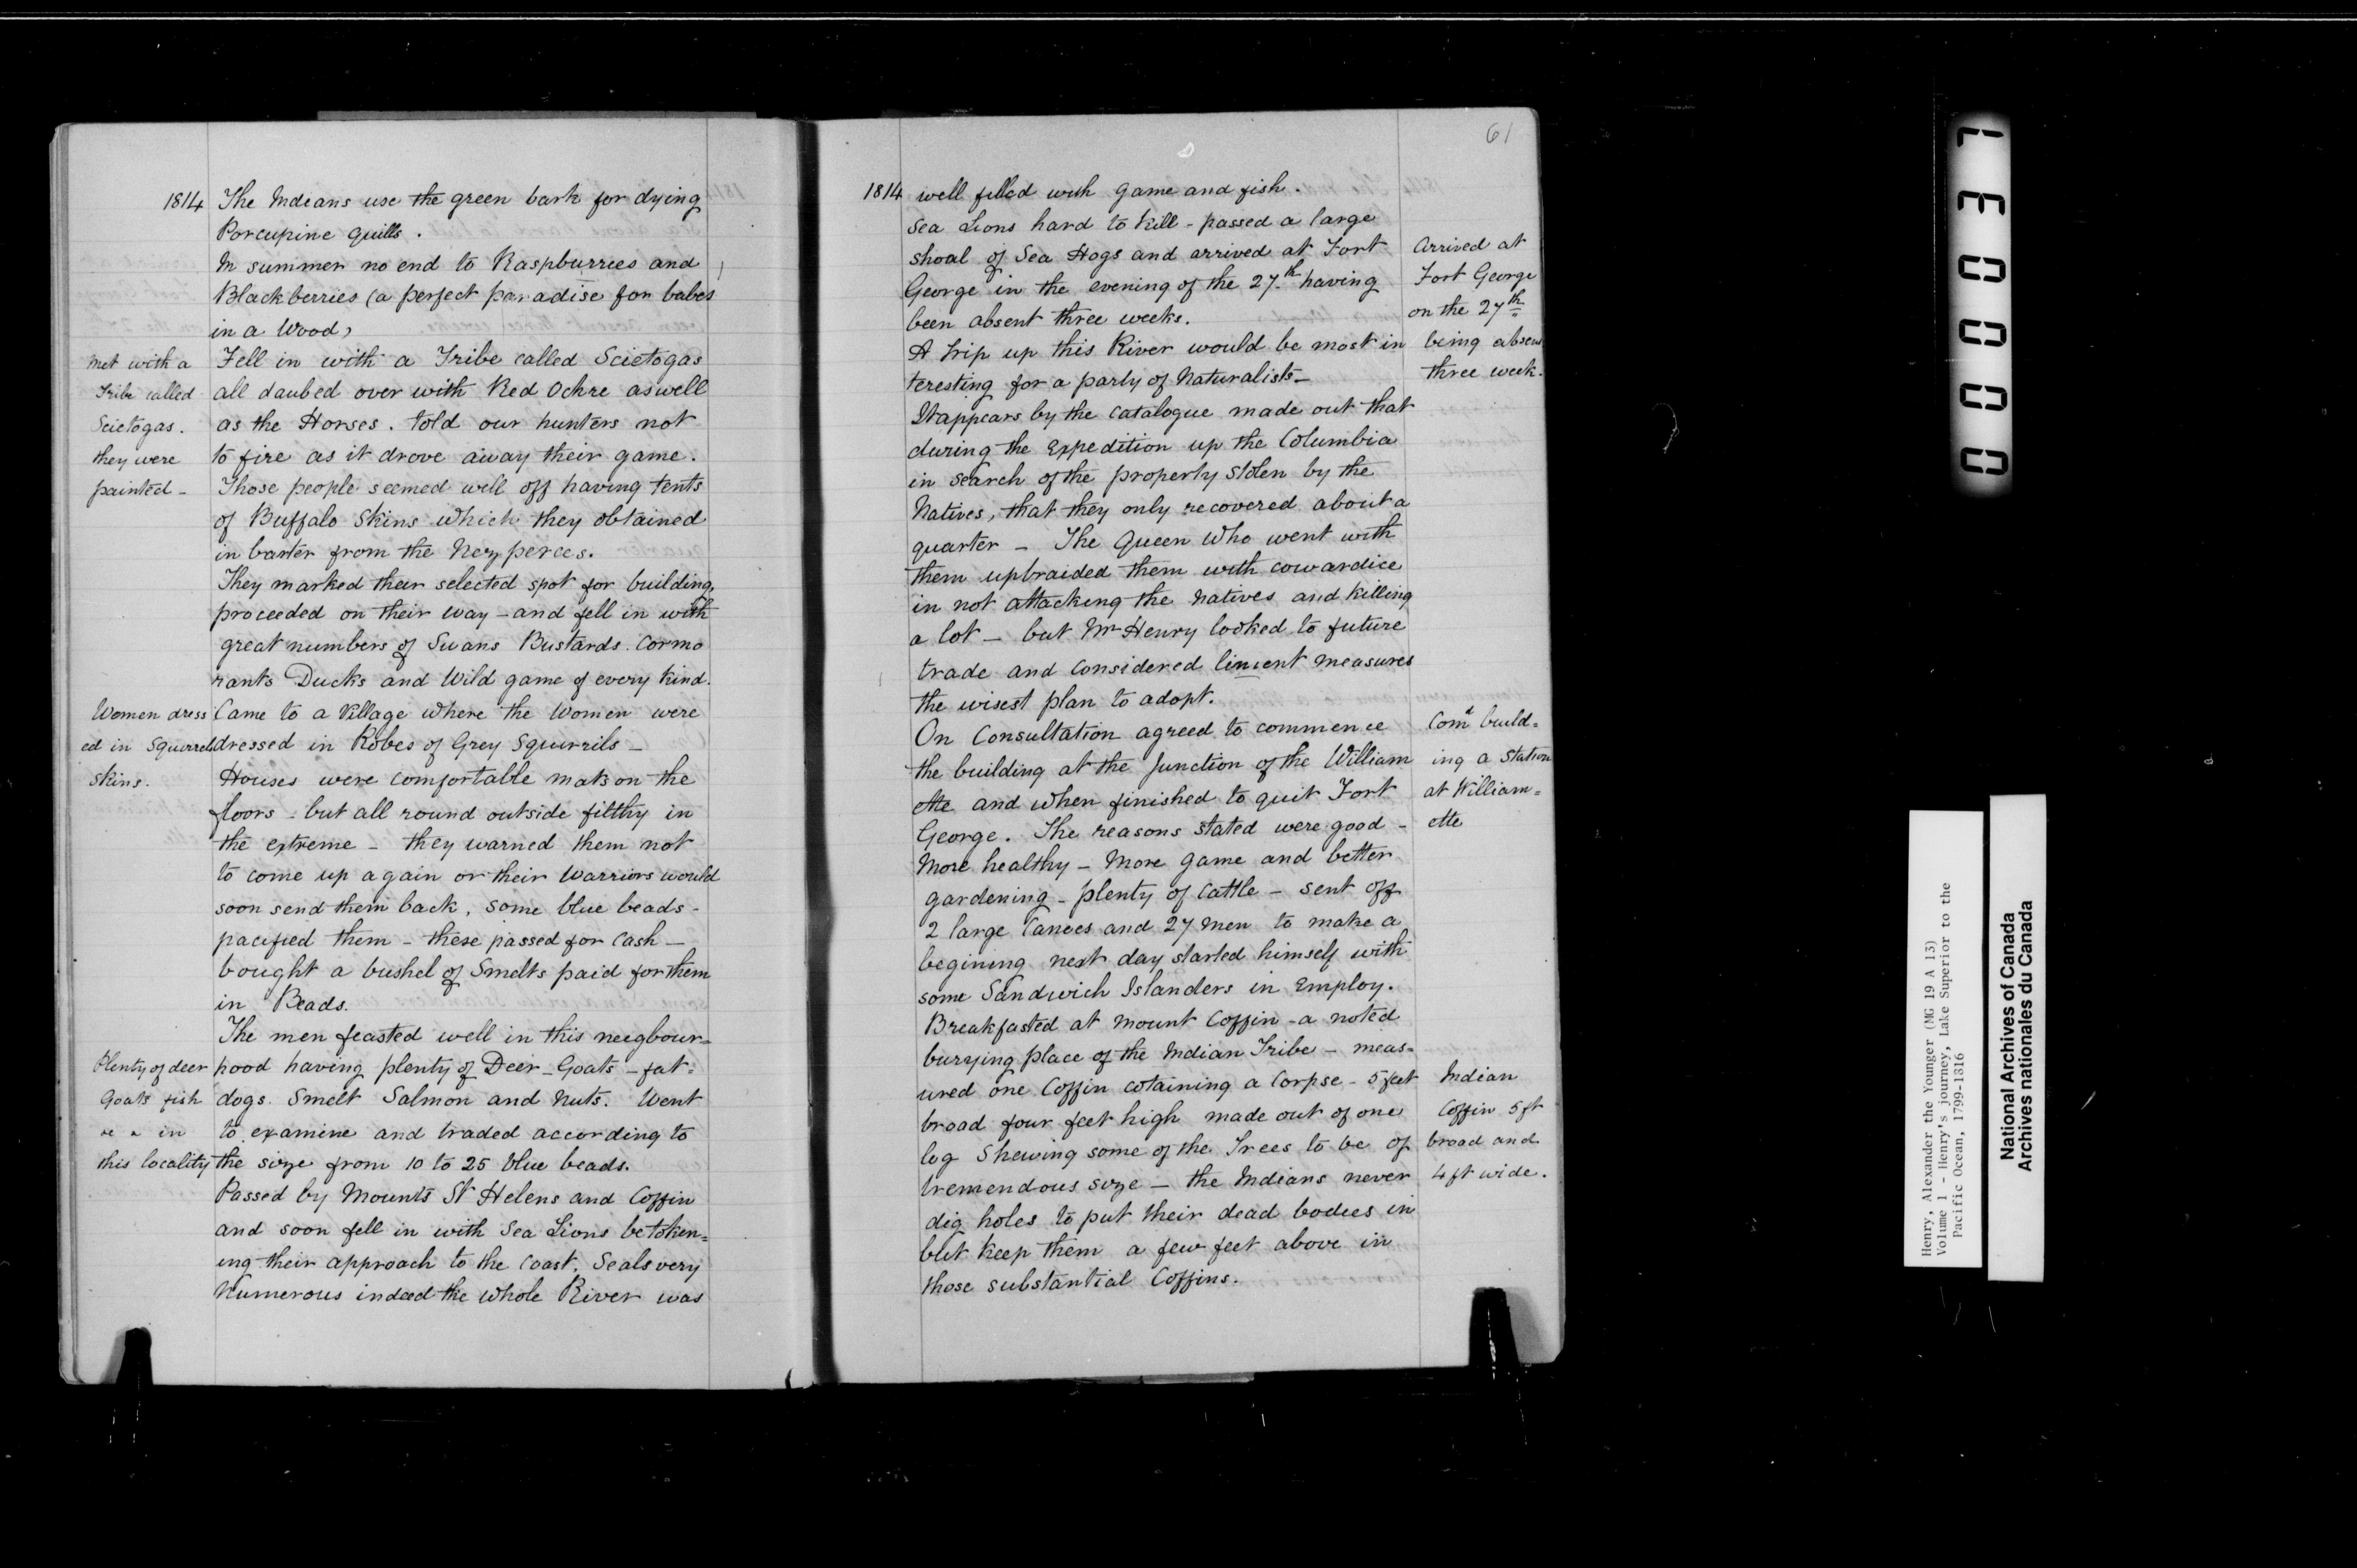 1814 The Indians use the green bark for dying
Porcupine quills.
In summer no end to Raspburries and
Blackberries (a perfect paradise for babes
in a Wood)
Fell in with a Tribe called Scietogas
all daubed over with Red Ochre aswell
as the Horses. told our hunters not
to fire as it drove away their game.
Those people seemed well off having tents
of Buffalo Skins which they obtained
in barter from the Nez perces.
They marked their selected spot for building,
proceeded on their way - and fell in with
great numbers of Swans Bustards. Cormo
rants Ducks and Wild game of every kind.
Came to a Village where the Women were
dressed in Robes of Grey Squirrils -
Houses were comfortable mats on the
floors - but all round outside filthy in
the extreme - they warned them not
to come up again or their Warriors would
soon send them back, some blue beads -
pacified them - these passed for Cash -
bought a bushel of Smelts paid for them
in Beads.
The men feasted well in this neigbour=
hood having plenty of Deer - Goats - fat=
dogs. Smelt Salmon and Nuts. Went
to examine and traded according to
the size from 10 to 25 blue beads.
Passed by Mounts St Helens and Coffin
and soon fell in with Sea Lions betoken=
ing their approach to the Coast. Seals very
Numerous indeed the whole River was
Met with a
Tribe called
Scietogas.
they were
painted -
Women dress
ed in Squirrel
Skins.
Plenty of deer
Goats fish
in
this locality
61
1814 well filled with game and fish.
Sea Lions hard to kill - passed a large
shoal of Sea Hogs and arrived at Fort
George in the evening of the 27th having
been absent three weeks.
A trip up this River would be most in
teresting for a party of Naturalists -
It appears by the catalogue made out that
during the Expedition up the Columbia
in search of the property stolen by the
Natives, that they only recovered about a
quarter - The Queen who went with
them upbraided them with cowardice
in not attacking the natives and killing
a lot - but Mr Henry looked to future
trade and considered linient measures
the wisest plan to adopt.
On Consultation agreed to commence
the building at the Junction of the William
ette and when finished to quit Fort
George. The reasons stated were good -
More healthy - More game and better
gardening - plenty of Cattle - sent off
2 large Canoes and 27 men to make a
begining next day started himself with
some Sandwich Islanders in Employ.
Breakfasted at Mount Coffin - a noted
burying place of the Indian Tribe - meas=
ured one Coffin cotaining a Corpse - 5 feet
broad four feet high made out of one
log Shewing some of the Trees to be of
tremendous size - the Indians never
dig holes to put their dead bodies in
but keep them a few feet above in
those substantial Coffins.
Arrived at
Fort George
on the 27th
being absen
three week.
Comd build=
ing a Station
at William=
ette
Indian
Coffin 5 ft
broad and
4 ft wide.
000037
Henry, Alexander the Younger (MG 19 A 13)
Volume 1 - Henry's journey, Lake Superior to the
Pacific Ocean, 1799-1816
National Archives of Canada
Archives nationales du Canada